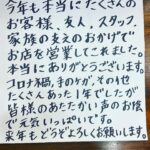 今年も本当にたくさんの
お客様、友人、スタッフ、
家族の支えのおかげで
お店を営業してこれました。
本当にありがとうございます。
コロナ禍、手のケガ、その1せ
たくさんあった1年でしたが
皆様のあたたかい声のお陰
で元気いっぱいです。
来年もどうぞよろしくお願いします。